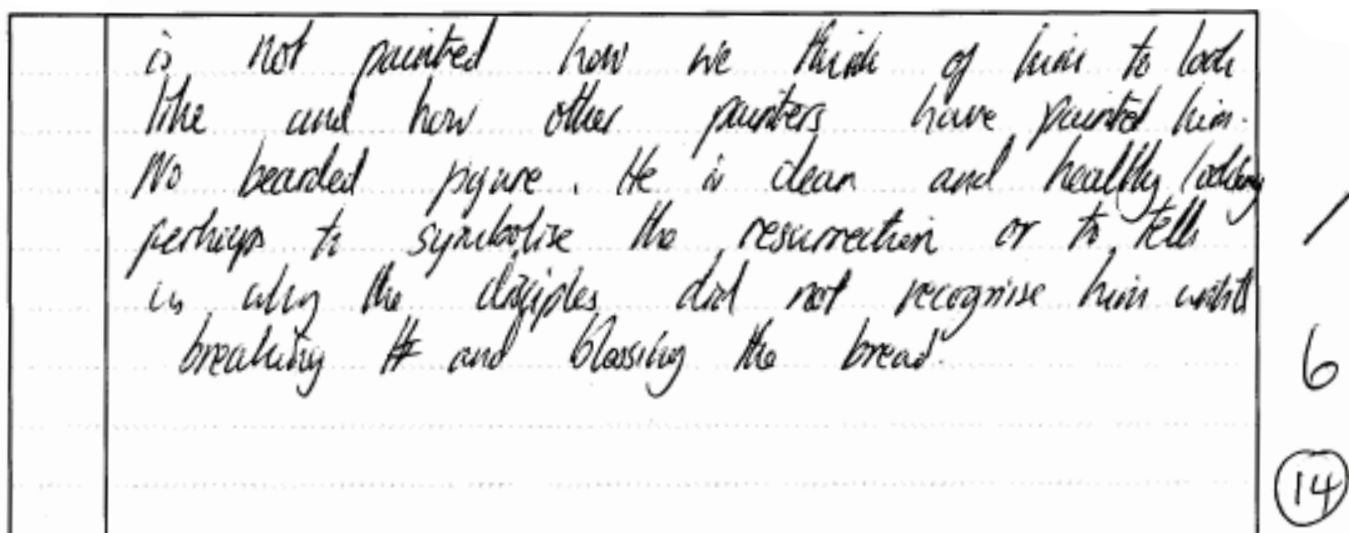 is not painted how we think of him to look
like and how other painters have painted him.
No bearded figure. He is clean and healthy looking
perhaps to symbolise the resurrection or to tells
us why the disciples did not recognise him until
breaking and blessing the bread.
/
6
14